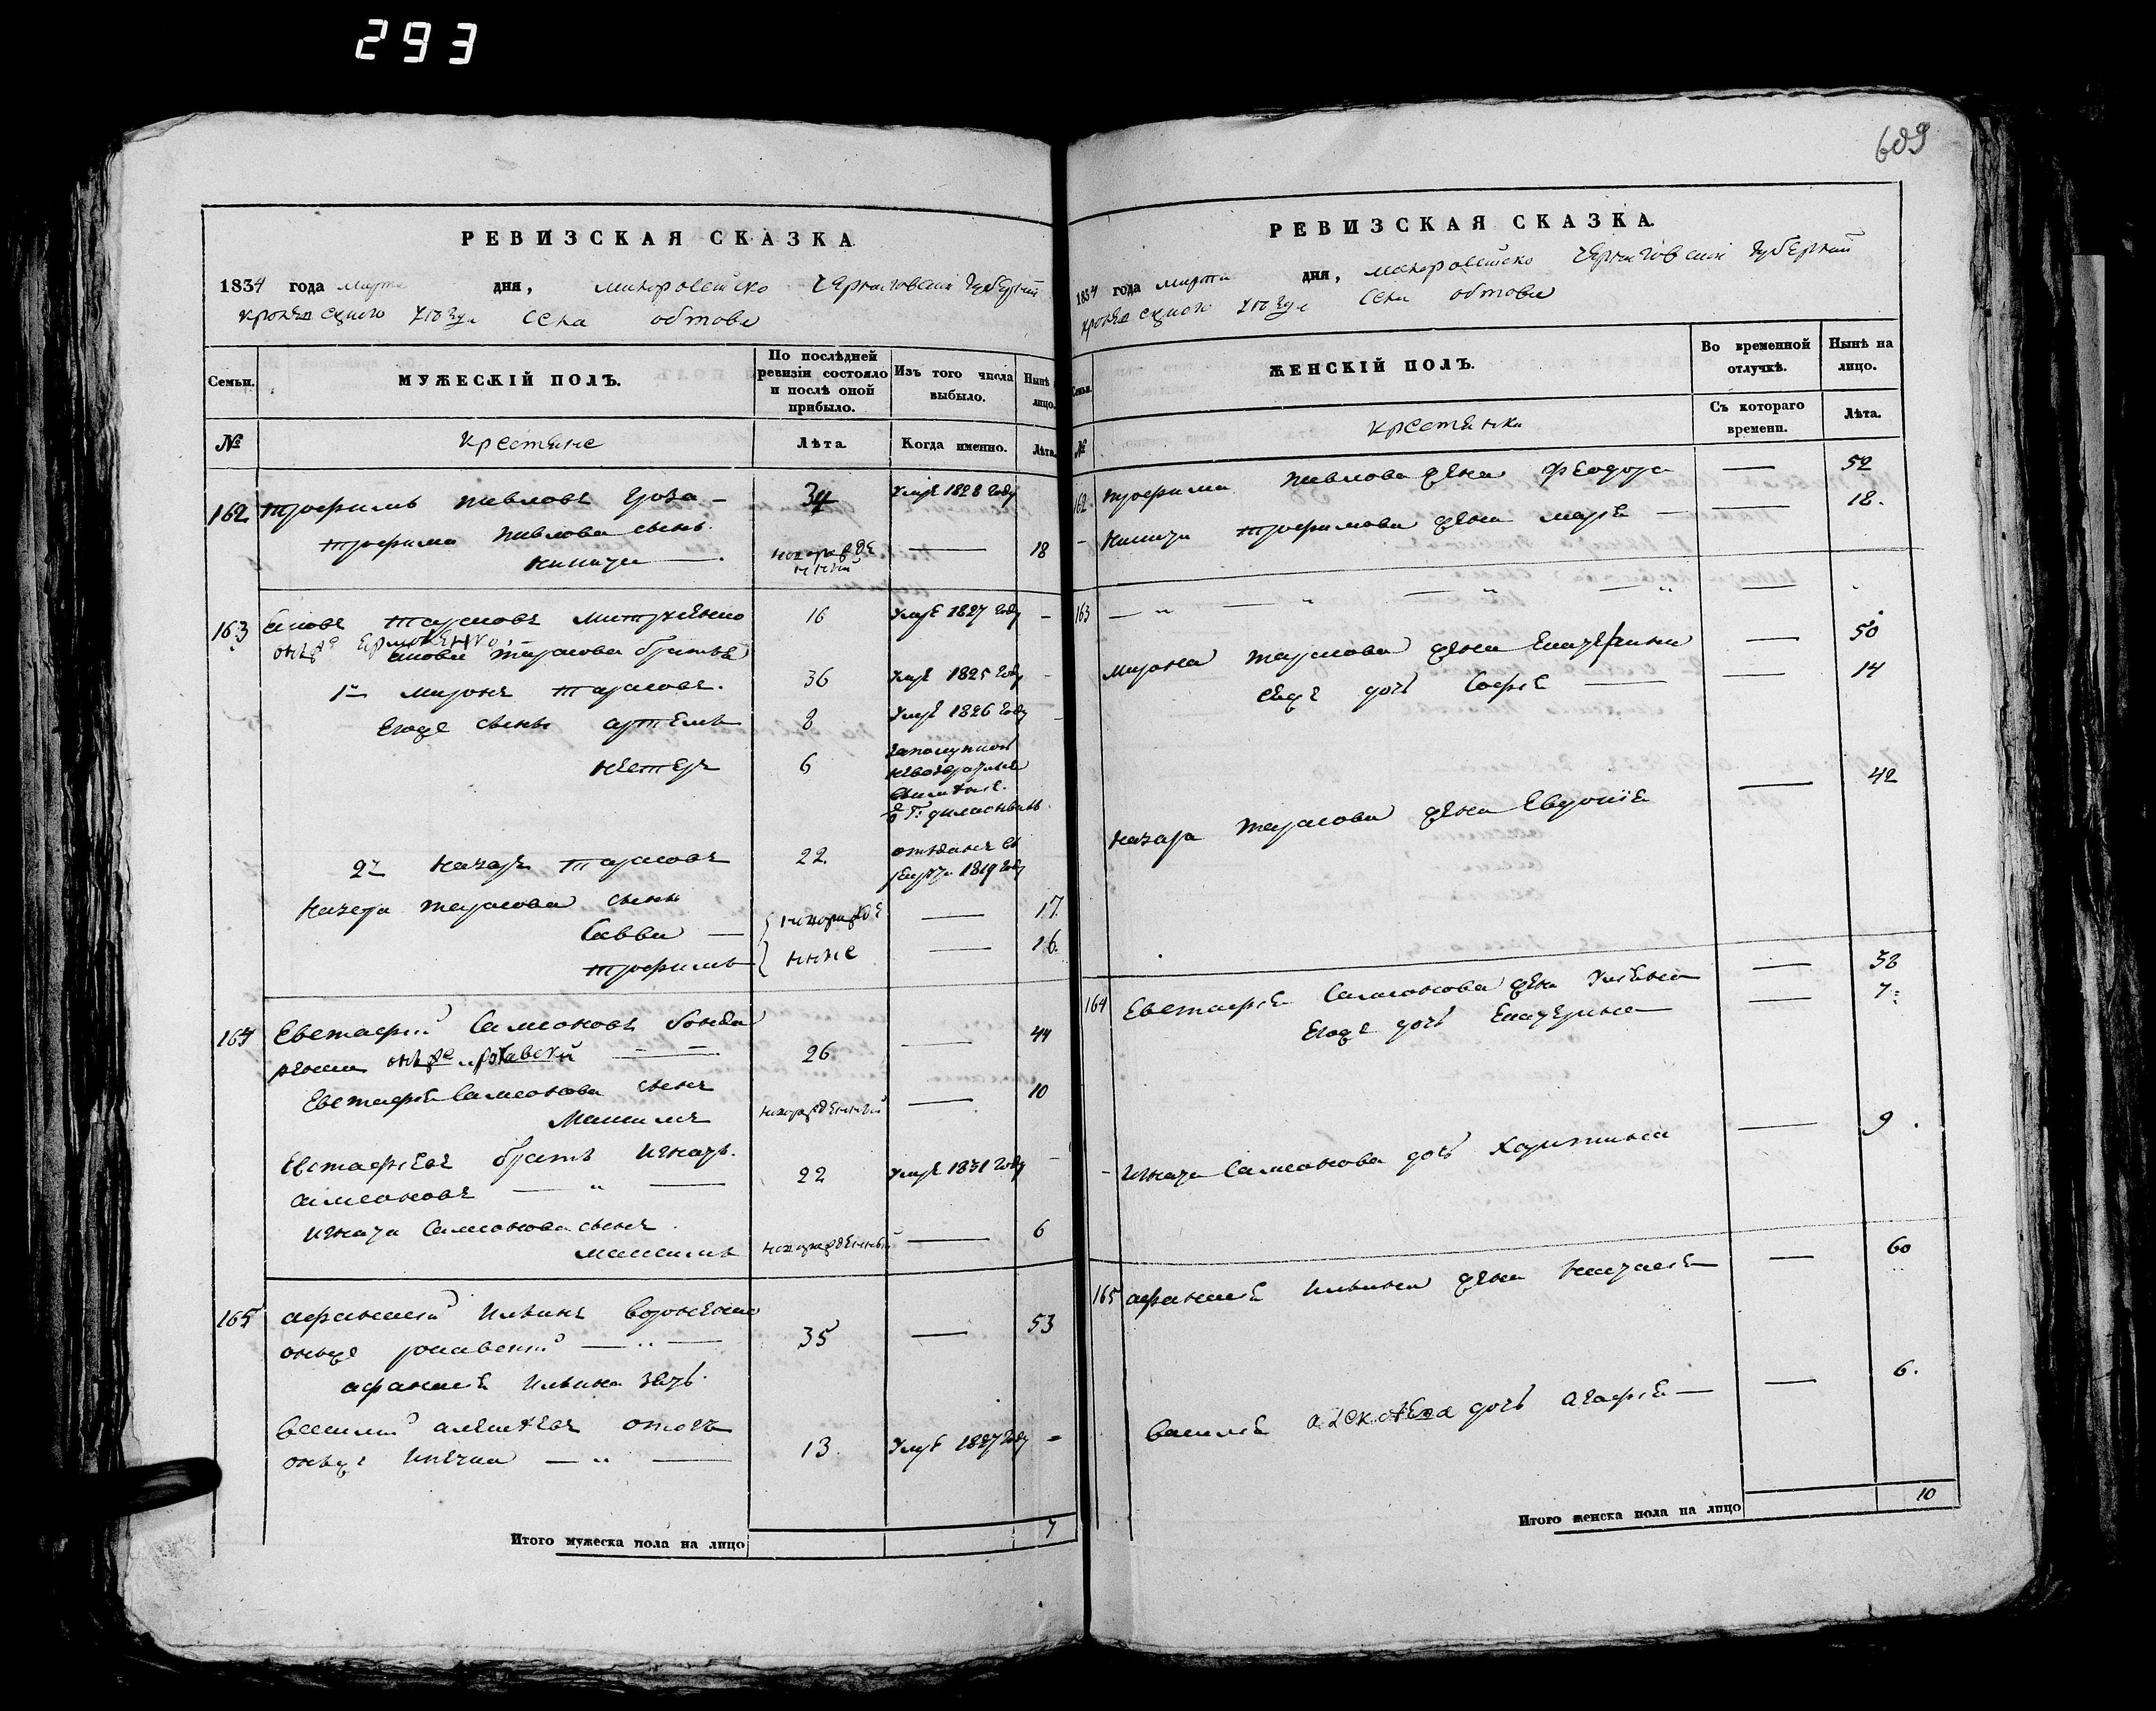 293
609
РЕВИЗСКАЯ СКАЗКА
1834 года марта дня, малоросійско Черниговскои губерніи
кролевецкого уезда села обтова
Семьи.
МУЖЕСКІЙ ПОЛЪ.
По послѣдней ревизіи состояло и послѣ оной прибыло.
Изъ того числа выбыло.
Нынѣ лицо.
№
крестяне
Лѣта
Когда именно.
Лѣта.
162 трофимъ павловъ гроза — 34 умре 1828 году
трофима павлова сынъ
новорожде нный — 18
163 тарасовъ 16 умре 1827 году —
онже Ермоленко
тарасова братья
1й миронъ тарасовъ. 36 умре 1825 году -
Егоже сыны артемъ 8 умре 1826 году
нестеръ 6
2й назаръ тарасовъ 22 отъданъ въ рекруты 1819 году
назара тарасова сыны
савва — новорожде — 17.
трофимъ нние — 16.
164 Евстафій самсоновъ
онже 26 — 44
Евстафія самсонова сынъ
новорожденный — 10
Евстафіевъ братъ игнатъ.
самсоновъ — " — 22 умре 1831 году -
игната самсонова сынъ
максимъ новорожденный — 6
165 афанасій ильинъ
онъже 35 — 53
афанасія ильина зять.
василій алексѣевъ
онъже 13. умре 1827 году =
Итого мужеска пола на лицо 7
РЕВИЗСКАЯ СКАЗКА.
1834 года марта дня, малоросійско Черниговскои губерніи
кролевецкого уезда села обтова
Семьи.
ЖЕНСКІЙ ПОЛЪ.
Во временной отлучкѣ.
Нынѣ на лицо.
№
крестянки
Съ котораго времени.
Лѣта.
162. трофима павлова жена феодора — 52
- трофимова жена марія — — 18.
163 — " — " — " —
мирона тарасова жена Екатерина — 50
Егоже дочь софія — — 14
назара тарасова жена Евдокія — 42
164 Евстафія самсонова жена уліяна — 38
Егоже дочь Екатерина — — 7:
- игната самсонова дочь харитина — 9.
165 афанасія ильина жена наталія — 60
василія алексѣева дочь агафія — — 6.
Итого женска пола на лицо 10